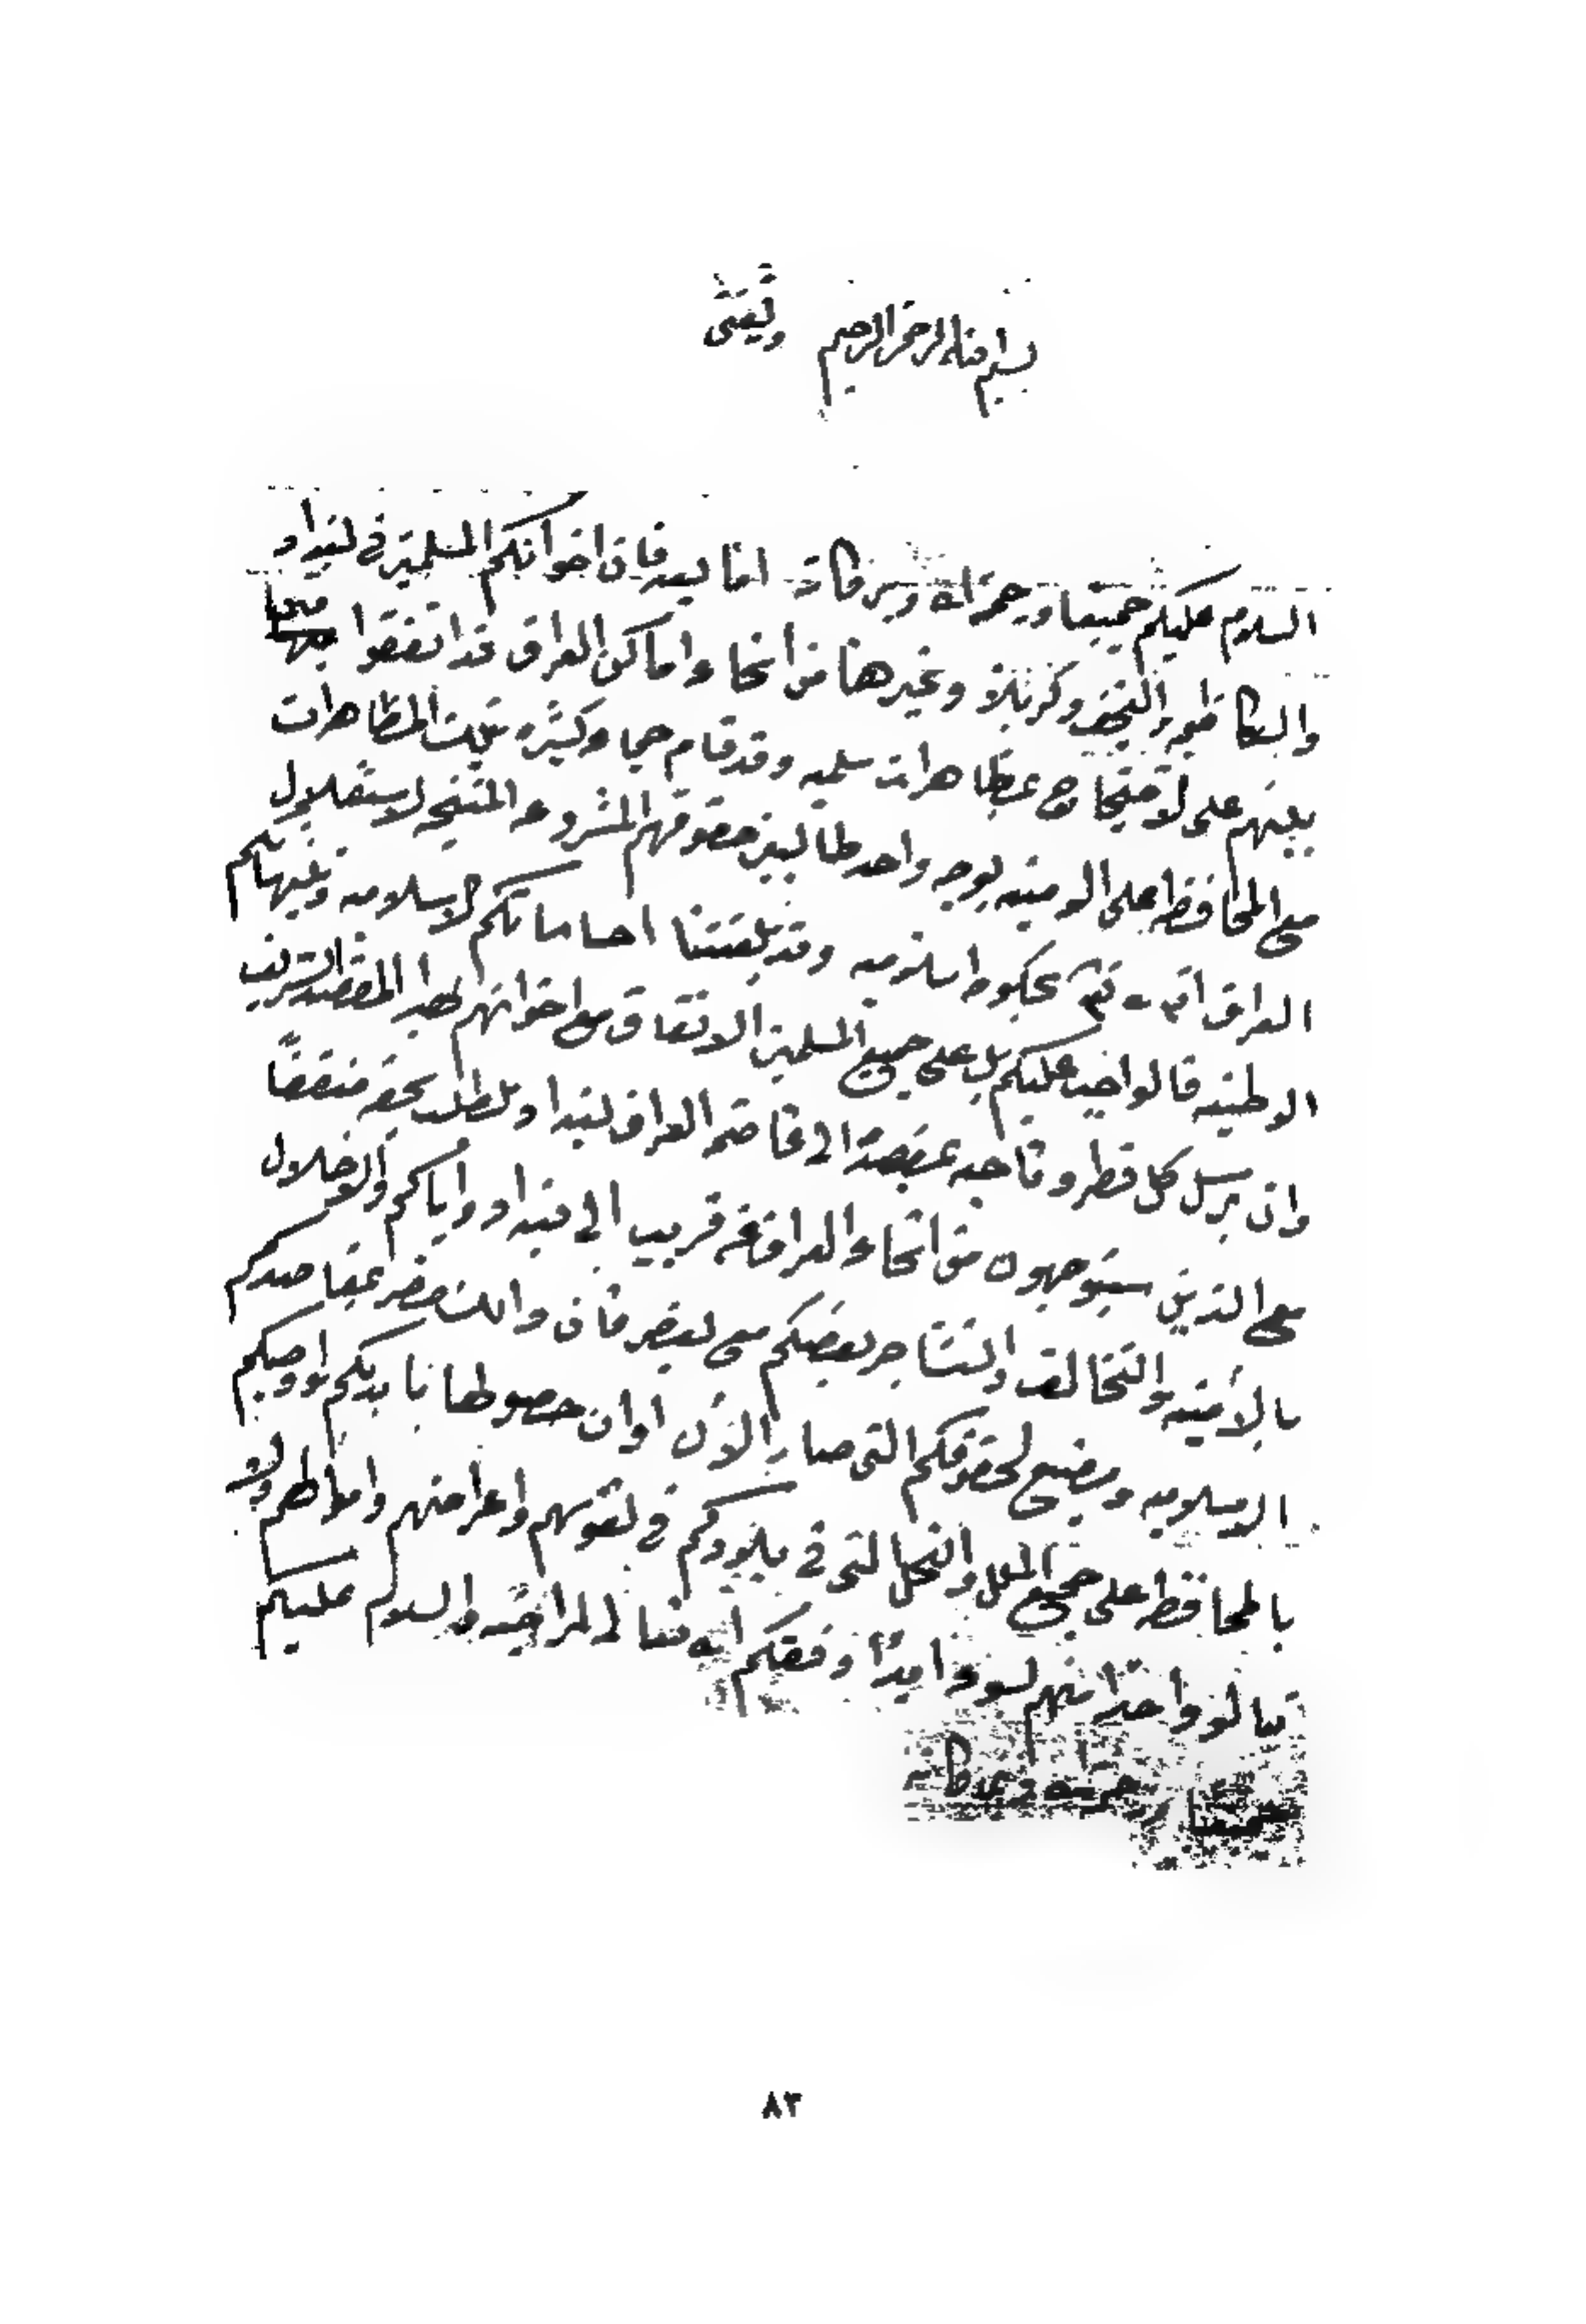 بسم الله الرحمن الرحيم وثقتي
السلام عليكم جميعا ورحمة الله وبركاته اما بعد فان اخوانكم المسلمين في بغداد
والكاظمية والنجف وكربلاء وغيرها من أنحاء واماكن العراق قد اتفقوا فيما
بينهم على الاحتجاج بمظاهرات سلميه وقد قام جماعه كثيره بتلك المظاهرات
مع المحافظه على الامنيه بوجه واحد طالبين حقوقهم المشروعه المنتجه لاستقلال
العراق بحكومه اسلاميه وقد بلغتنا احساساتكم الاسلاميه وتنبهاتكم
الوطنيه فالواجب عليكم بل على جميع المسلمين الاتفاق مع اخوانهم لهذا المقصد الشريف
وان يرسل كل قطر وناحيه مقصدا الى عاصمه العراق بغداد للطلب بحقه متفقًا
مع الذين سيتوجهون من انحاء العراق عن قريب الى بغداد واياكم والاخلال
بالأمنيه والتخالف والتشاجر بعضكم مع بعض فان ذلك مضر بمقاصدكم
الاسلاميه ومضيع لحقوقكم التي صار الآن اوان حصولها بايديكم واوصيكم
بالمحافظه على جميع الملل والنحل التي في بلادكم في نفوسهم واعراضهم واموالهم ولا
تنالوا واحدا منهم بسوء ابدًا وفقكم الله لمراضيه والسلام عليكم
جميعا ورحمة الله وبركاته
٨٣